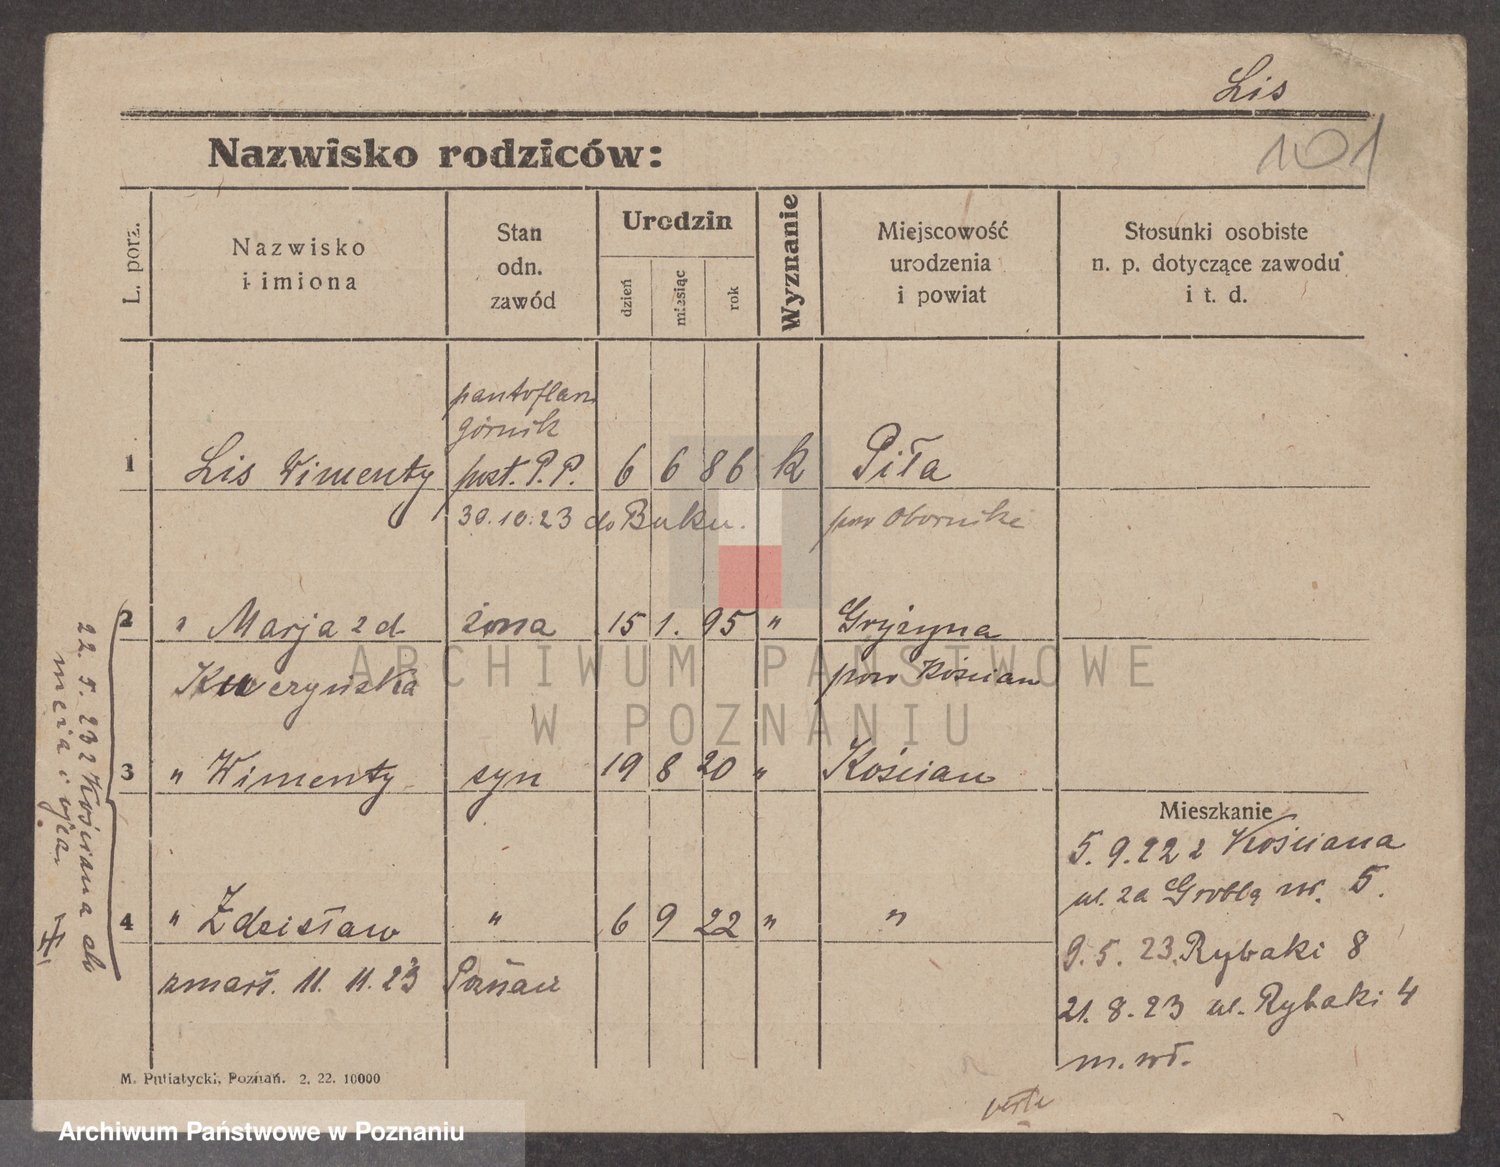 Lis
101
Nazwisko rodziców:
L. porz.
Nazwisko
i imiona
Stan
odn.
zawód
Urodzin
dzień
miesiąc
rok
Wyznanie
Miejscowość
urodzenia
i powiat
Stosunki osobiste
n. p. dotyczące zawodu
i t. d.
pantoflarz
górnik
1 Lis Wincenty post. P. P. 6 6 86 k Piła
30.10.23 do Buku. pow Obornike
2 " Marja zd żona 15 1. 95 " Gryżyna
Kuczyńska pow Kościan
3 " Wincenty syn 19 8 20 " Kościan
Mieszkanie
4 " Zdzisław " 6 9 22 " "
zmarł. 11. 11. 23 Poznań
5. 9. 22 z Kościana
ul. za Groblą nr. 5.
9. 5. 23. Rybaki 8
21. 8. 23 ul. Rybaki 4
m. wł.
22. 5. 23 z Kościana do
męża i ojca.
verte
M. Putiatycki, Poznań. 2. 22. 10000
ARCHIWUM PAŃSTWOWE
W POZNANIU
Archiwum Państwowe w Poznaniu